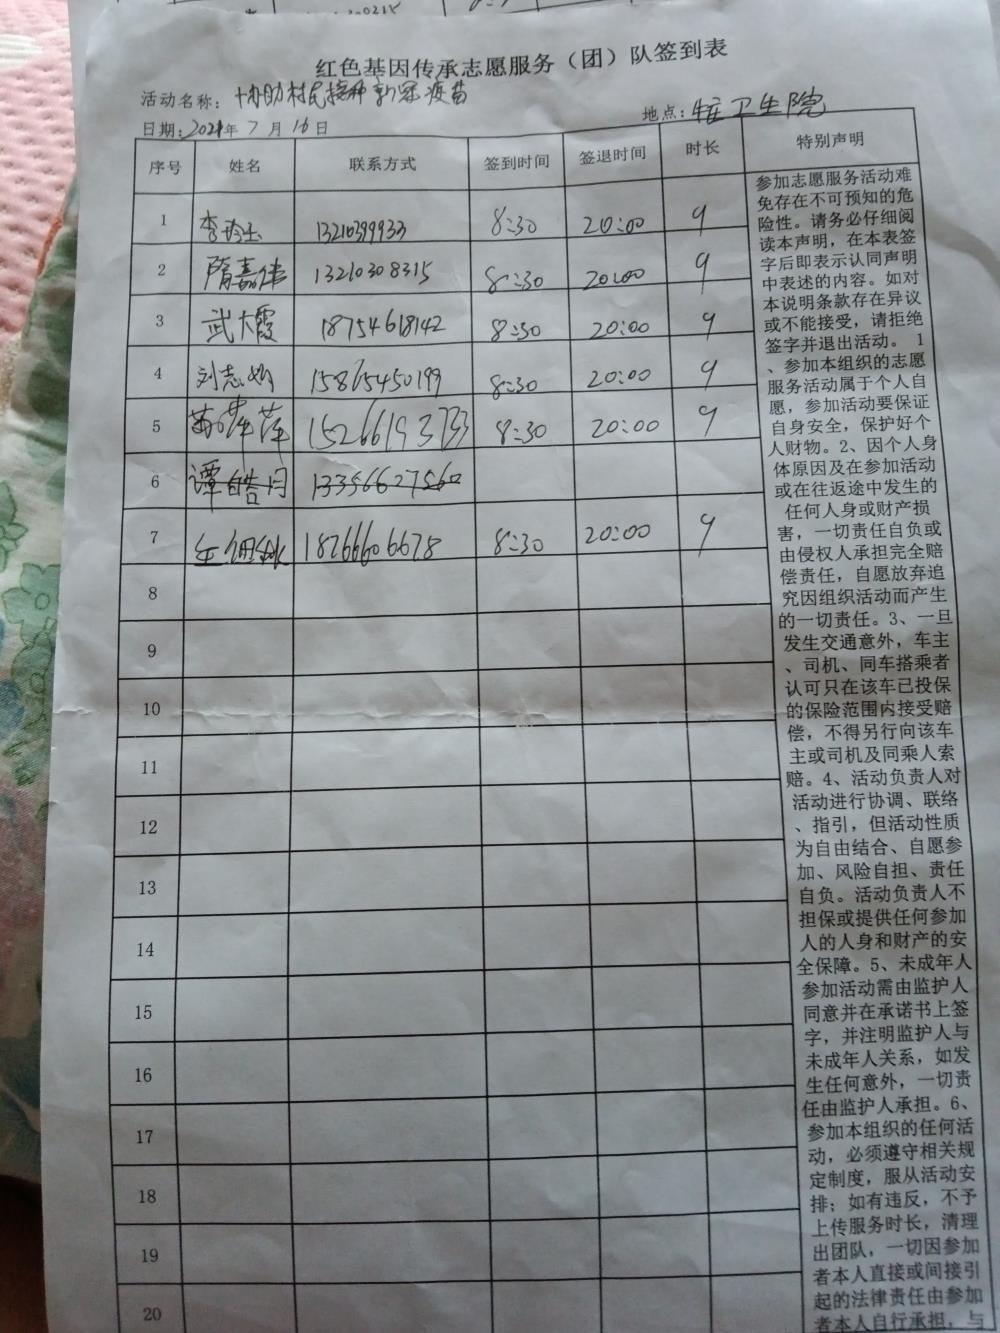 红色基因传承志愿服务（团）队签到表
活动名称：协助村民接种新冠疫苗
地点：卫生院
日期：2021年7月16日
序号 姓名 联系方式 签到时间 签退时间 时长 特别声明
1 李玲玉 13210399933 8:30 20:00 9
2 隋嘉伟 13210308315 8:30 20:00 9
3 武大霞 18754618142 8:30 20:00 9
4 刘志娟 15865450199 8:30 20:00 9
5 萍萍 15266193733 8:30 20:00 9
6 谭皓月 13356627560
7 18266606678 8:30 20:00 9
8
9
10
11
12
13
14
15
16
17
18
19
20
参加志愿服务活动难
免存在不可预知的危
险性。请务必仔细阅
读本声明，在本表签
字后即表示认同声明
中表述的内容。如对
本说明条款存在异议
或不能接受，请拒绝
签字并退出活动。1
、参加本组织的志愿
服务活动属于个人自
愿，参加活动要保证
自身安全，保护好个
人财物。2、因个人身
体原因及在参加活动
或在往返途中发生的
任何人身或财产损
害，一切责任自负或
由侵权人承担完全赔
偿责任，自愿放弃追
究因组织活动而产生
的一切责任。3、一旦
发生交通意外，车主
、司机、同车搭乘者
认可只在该车已投保
的保险范围内接受赔
偿，不得另行向该车
主或司机及同乘人索
赔。4、活动负责人对
活动进行协调、联络
、指引，但活动性质
为自由结合、自愿参
加、风险自担、责任
自负。活动负责人不
担保或提供任何参加
人的人身和财产的安
全保障。5、未成年人
参加活动需由监护人
同意并在承诺书上签
字，并注明监护人与
未成年人关系，如发
生任何意外，一切责
任由监护人承担。6、
参加本组织的任何活
动，必须遵守相关规
定制度，服从活动安
排；如有违反，不予
上传服务时长，清理
出团队，一切因参加
者本人直接或间接引
起的法律责任由参加
者本人自行承担，与